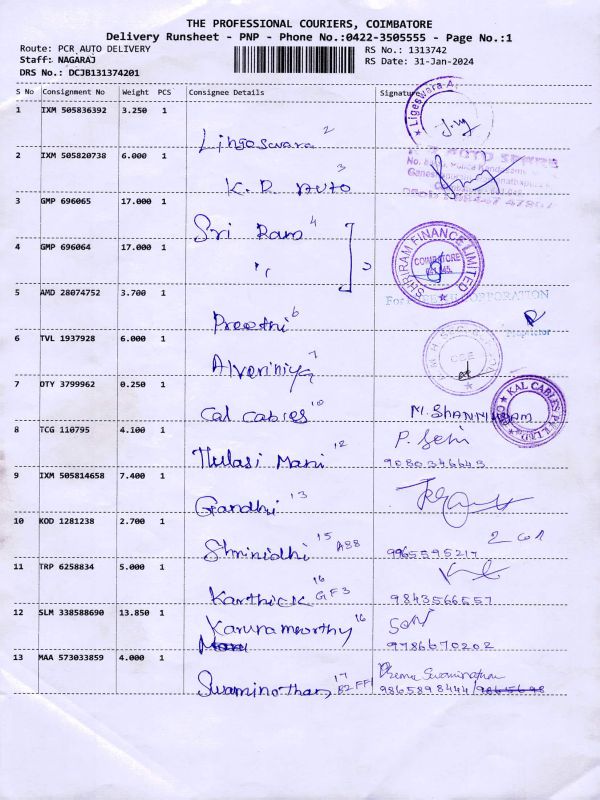 THE PROFESSIONAL COURIERS, COIMBATORE
Delivery Runsheet - PNP - Phone No.:0422-3505555 - Page No.:1
Route: PCR AUTO DELIVERY
RS No.: 1313742
Staff: NAGARAJ
RS Date: 31-Jan-2024
DRS No.: DCJB131374201
S No Consignment No Weight PCS Consignee Details Signature
1 IXM 505836392 3.250 1
Lingeswara 2
2 IXM 505820738 6.000 1
K.R AUTO 3
3 GMP 696065 17.000 1
Sri Ram 4
SHRIRAM FINANCE LIMITED
COIMBATORE
4 GMP 696064 17.000 1
" 3
5 AMD 28074752 3.700 1
CORPORATION
Preethi 6
Proprietor
6 TVL 1937928 6.000 1
CBE
7
7 OTY 3799962 0.250 1
KAL CABLES PVT LTD
Cal Cables 10 M. SHANMUGAM
8 TCG 110795 4.100 1
Thulasi Mani 12 P. Selvi
9080346643
9 IXM 505814658 7.400 1
Gandhi 13
10 KOD 1281238 2.700 1
Shrinidhi 15 A88 9965595217
11 TRP 6258834 5.000 1
Karthick 16 GF3 9843566557
12 SLM 338588690 13.850 1
Karunamoorthy 16
9786670202
13 MAA 573033859 4.000 1
Prema Swaminathan
Swaminothan 17 B2FF1 9865898444/